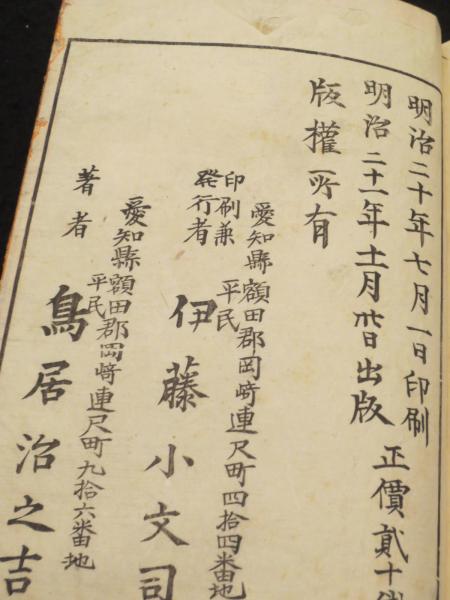 明治二十年七月一日印刷
明治二十一年十一月廿日出版
正價貳十
版權所有
愛知縣額田郡岡崎連尺町四拾四番地
平民
印刷兼
發行者
伊藤小文司
愛知縣額田郡岡崎連尺町九拾六番地
平民
著者
鳥居治之吉